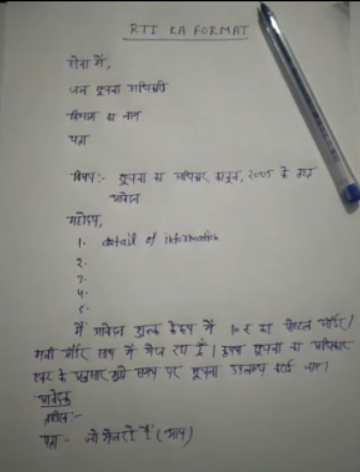 RTI KA FORMAT
सेवा में,
जन सूचना अधिकारी
विभाग का नाम
पता
विषय:- सूचना का अधिकार कानून, 2005 के तहत
आवेदन
महोदय,
1. detail of information
2.
3.
4.
5.
मैं आवेदन शुल्क के रूप में 10 ₹ का पोस्टल ऑर्डर /
मनी ऑर्डर साथ में भेज रहा हूँ । सूचना का अधिकार
के अनुसार मुझे समय पर सूचना उपलब्ध
आवेदक
पता - जो भेज रहे हैं (आप)